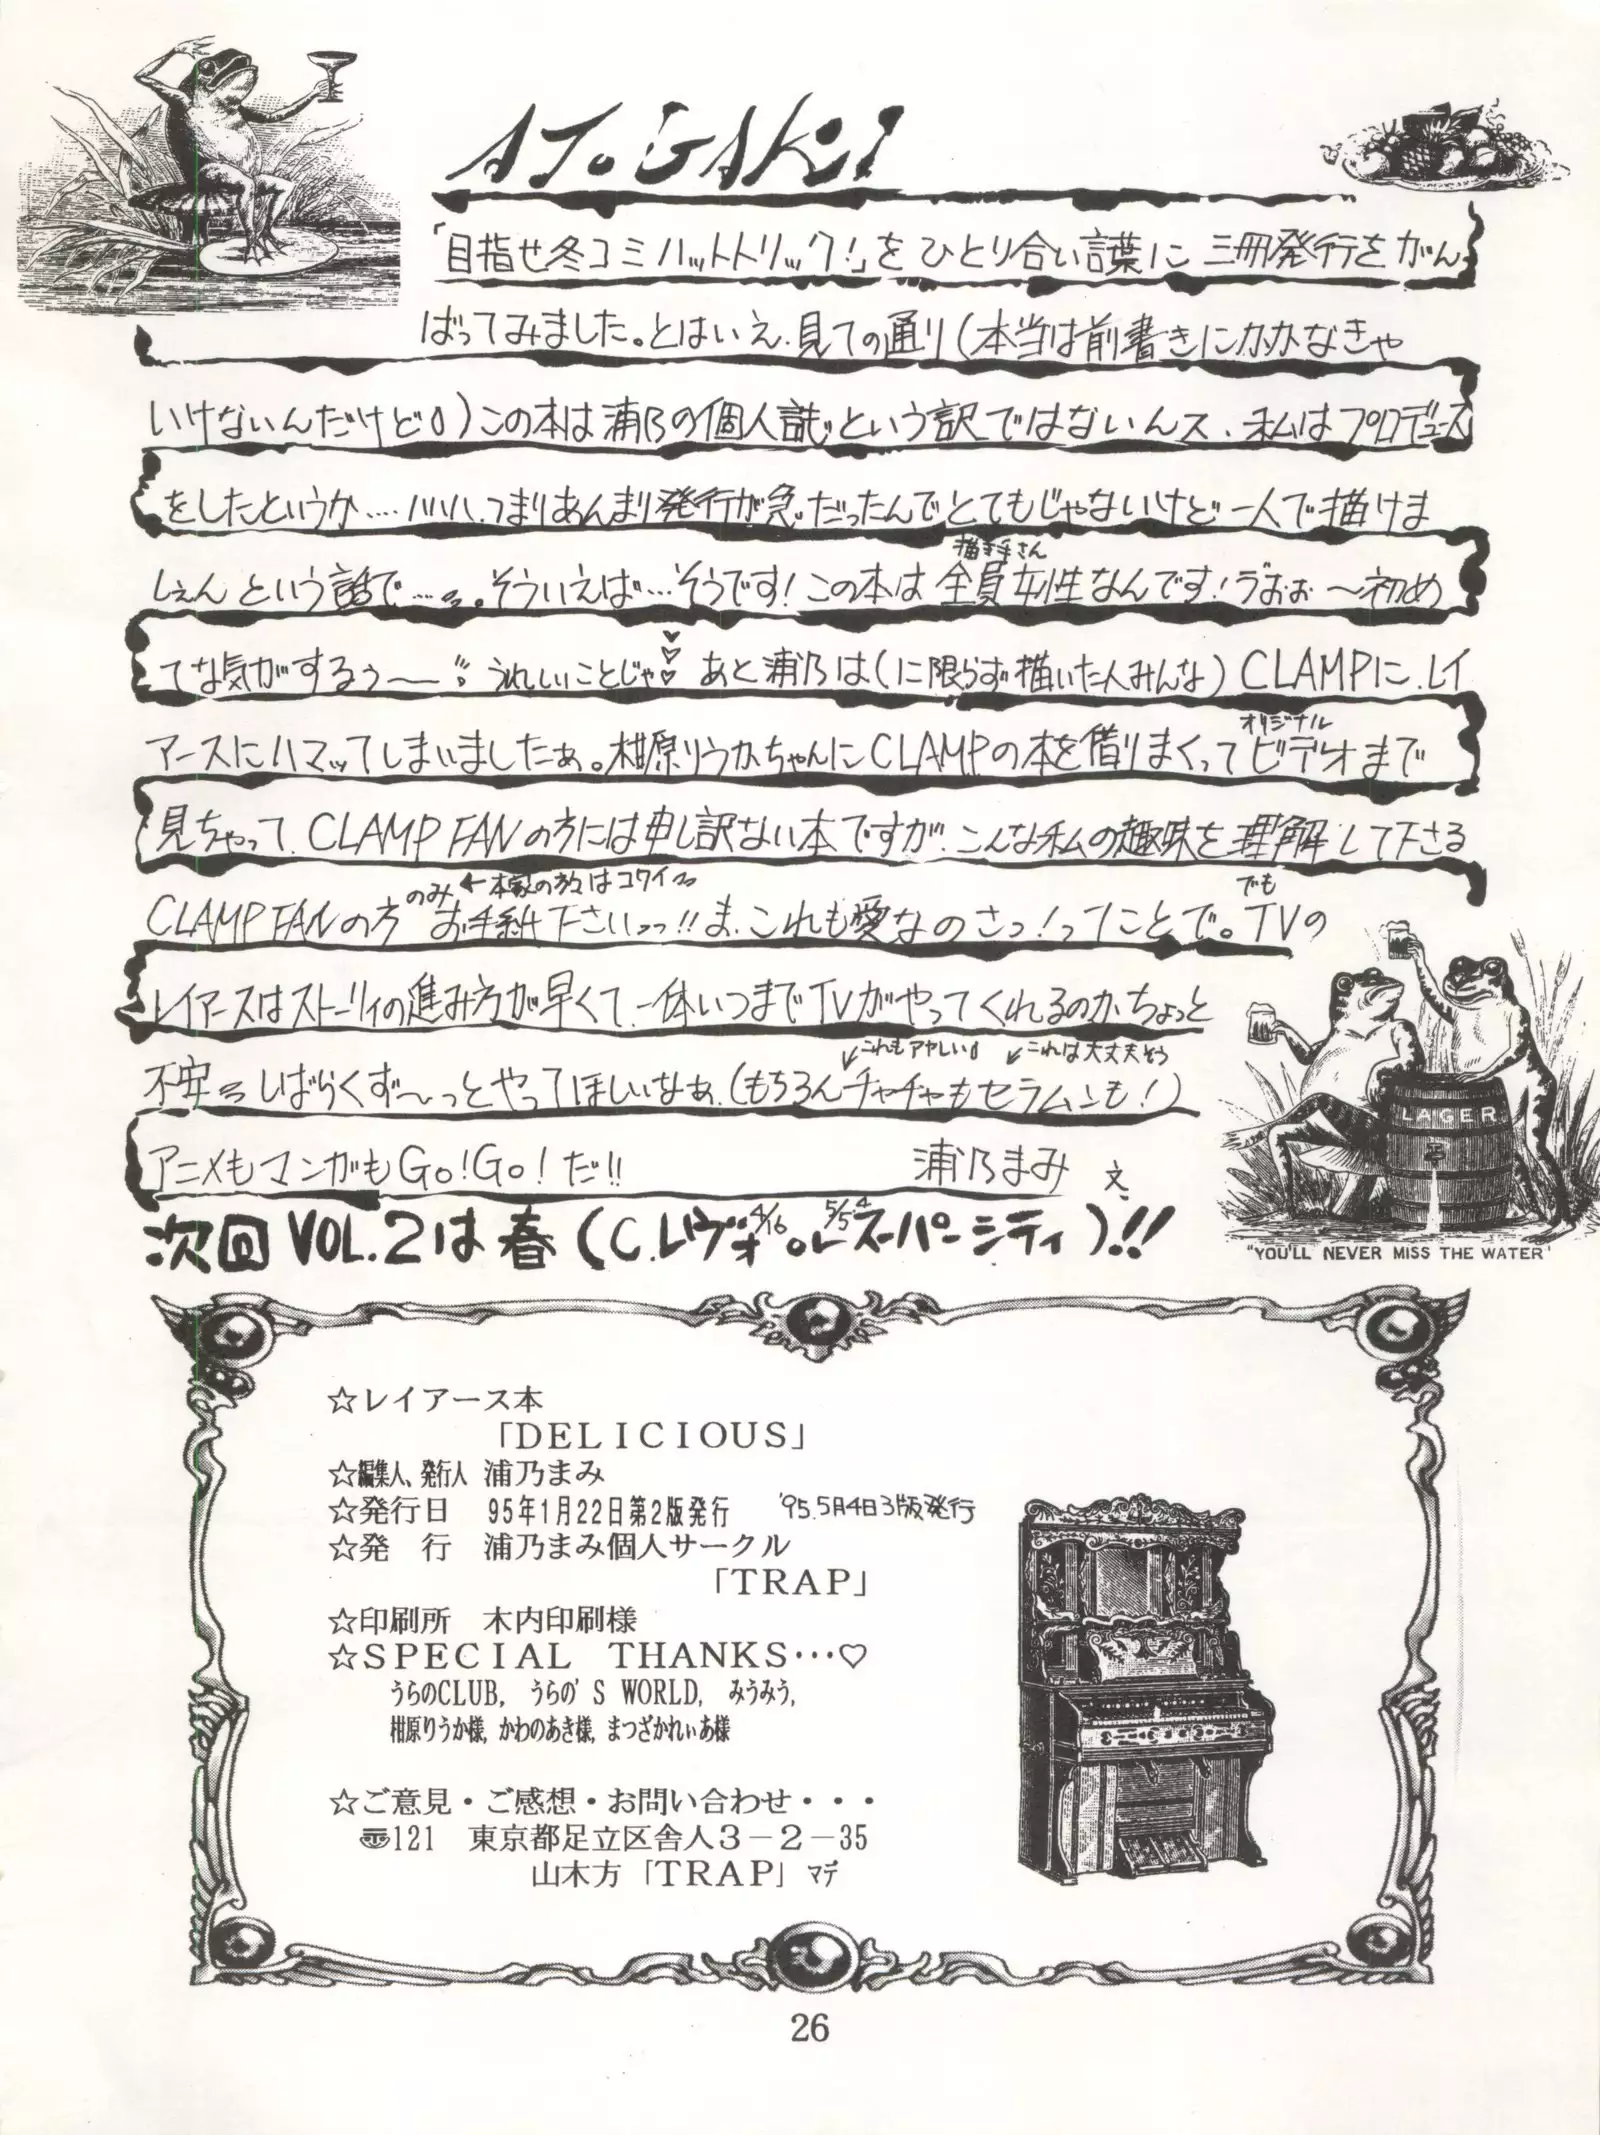 ATOGAKI
「目指せ冬コミハットトリック!」をひとり合い言葉に三冊発行をがん
ばってみました。とはいえ、見ての通り(本当は前書きにかかなきゃ
いけないんだけど)この本は浦乃の個人誌という訳ではないんス、私はプロデュース
をしたというか…ハハハ、つまりあんまり発行が急だったんでとてもじゃないけど一人で描けま
描き手さん
しぇんという話で…。そういえば…そうです!この本は全員女性なんです!うおぉ〜初め
てな気がするぅ〜 うれしいことじゃ♡♡ あと浦乃は(に限らず描いた人みんな)CLAMPに、レイ
オリジナル
アースにハマッてしまいましたぁ。柑原りうかちゃんにCLAMPの本を借りまくってビデオまで
見ちゃって、CLAMP FANの方には申し訳ない本ですが、こんな私の趣味を理解して下さる
のみ ←本家の方々はコワイっ
でも
CLAMP FANの方お手紙下さいっっ!!ま、これも愛なのさっ!ってことで。TVの
レイアースはストーリィの進み方が早くて、一体いつまでTVがやってくれるのか、ちょっと
↙これもアヤしい ↙これは大丈夫そう
不安 しばらくず〜っとやってほしいなぁ、(もちろんチャチャもセラムンも!)
アニメもマンガもGo!Go!だ!! 浦乃まみ 文
次回VOL.2は春(C.レヴォ4/16 or 5/5 4スーパーシティ)!!
LAGER
"YOU'LL NEVER MISS THE WATER"
☆レイアース本
「DELICIOUS」
☆編集人、発行人 浦乃まみ
☆発行日 95年1月22日第2版発行 '95.5月4日3版発行
☆発 行 浦乃まみ個人サークル
「TRAP」
☆印刷所 木内印刷様
☆SPECIAL THANKS…♡
うらのCLUB, うらの'S WORLD, みうみう,
柑原りうか様, かわのあき様, まつざかれぃあ様
☆ご意見・ご感想・お問い合わせ・・・
〠121 東京都足立区舎人3－2－35
山木方「TRAP」マデ
26